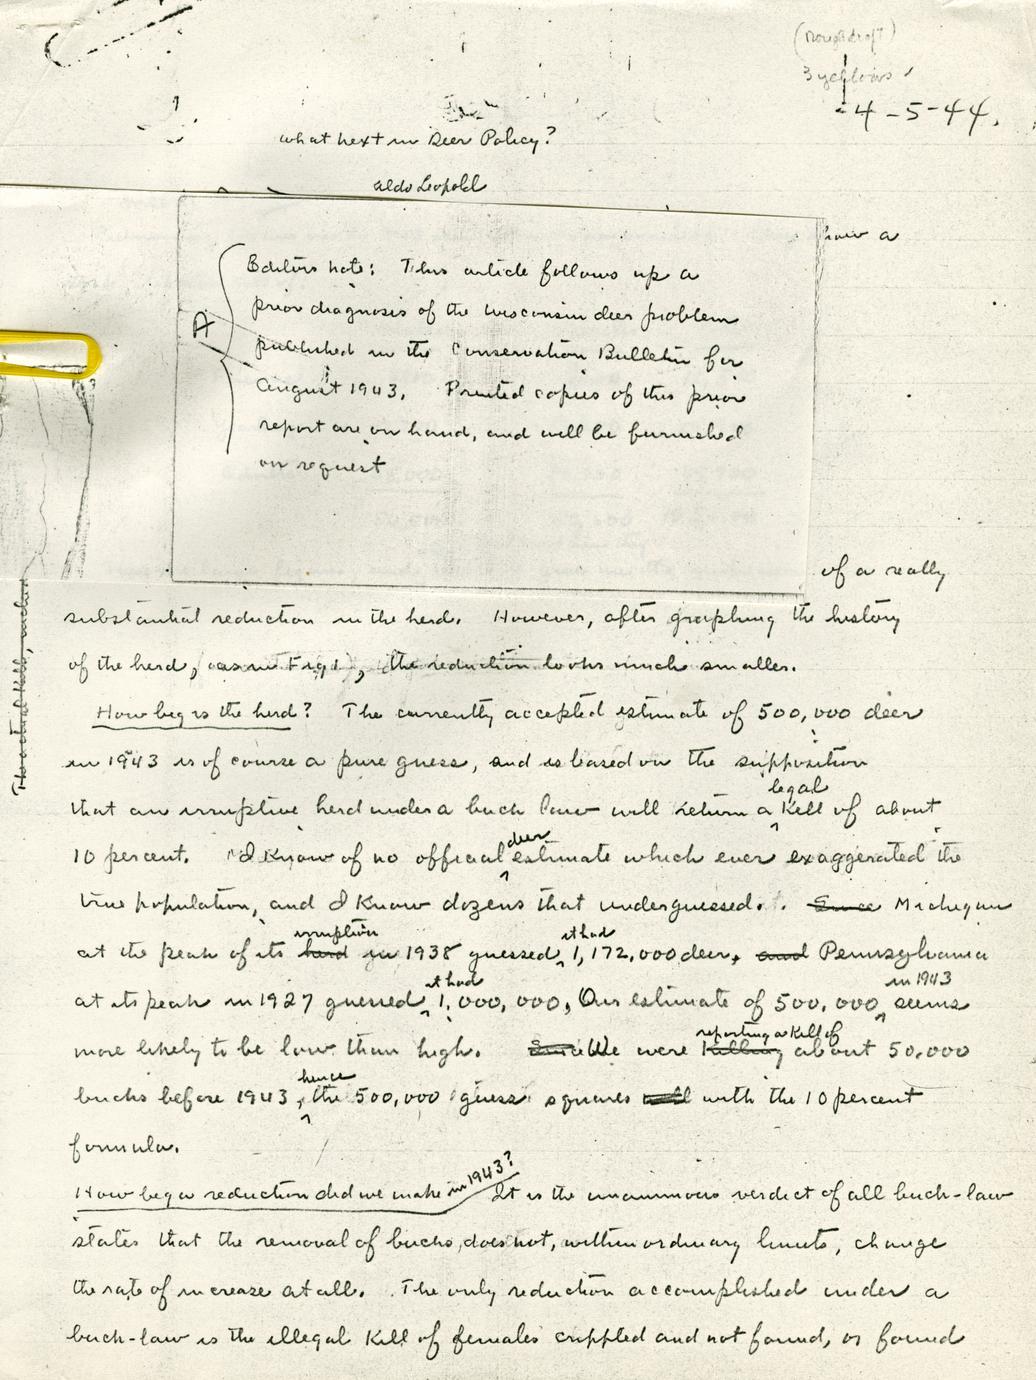 (rough draft)
3 yellows
4-5-44.
What next in Deer Policy?
Aldo Leopold
how a
A
Editors note: This article follows up a
prior diagnosis of the Wisconsin deer problem
published in the Conservation Bulletin for
August 1943. Printed copies of this prior
report are on hand, and will be furnished
on request
of a really
substantial reduction in the herd. However, after graphing the history
of the herd, (as in Fig 1), the reduction looks much smaller.
How big is the herd? The currently accepted estimate of 500,000 deer
in 1943 is of course a pure guess, and is based on the supposition
legal
that an irruptive herd under a buck law will return a kill of about
deer
10 percent. I know of no official estimate which ever exaggerated the
true population, and I know dozens that underguessed. Since Michigan
irruption it had
at the peak of its herd in 1938 guessed 1,172,000 deer, and Pennsylvania
it had in 1943
at its peak in 1927 guessed 1,000,000, Our estimate of 500,000 seems
reporting a kill of
more likely to be low than high. Since We were killing about 50,000
hence
bucks before 1943, the 500,000 guess squares with the 10 percent
formula.
in 1943?
How big a reduction did we make It is the unanimous verdict of all buck-law
states that the removal of bucks does not, within ordinary limits, change
the rate of increase at all. The only reduction accomplished under a
buck-law is the illegal kill of females crippled and not found, or found